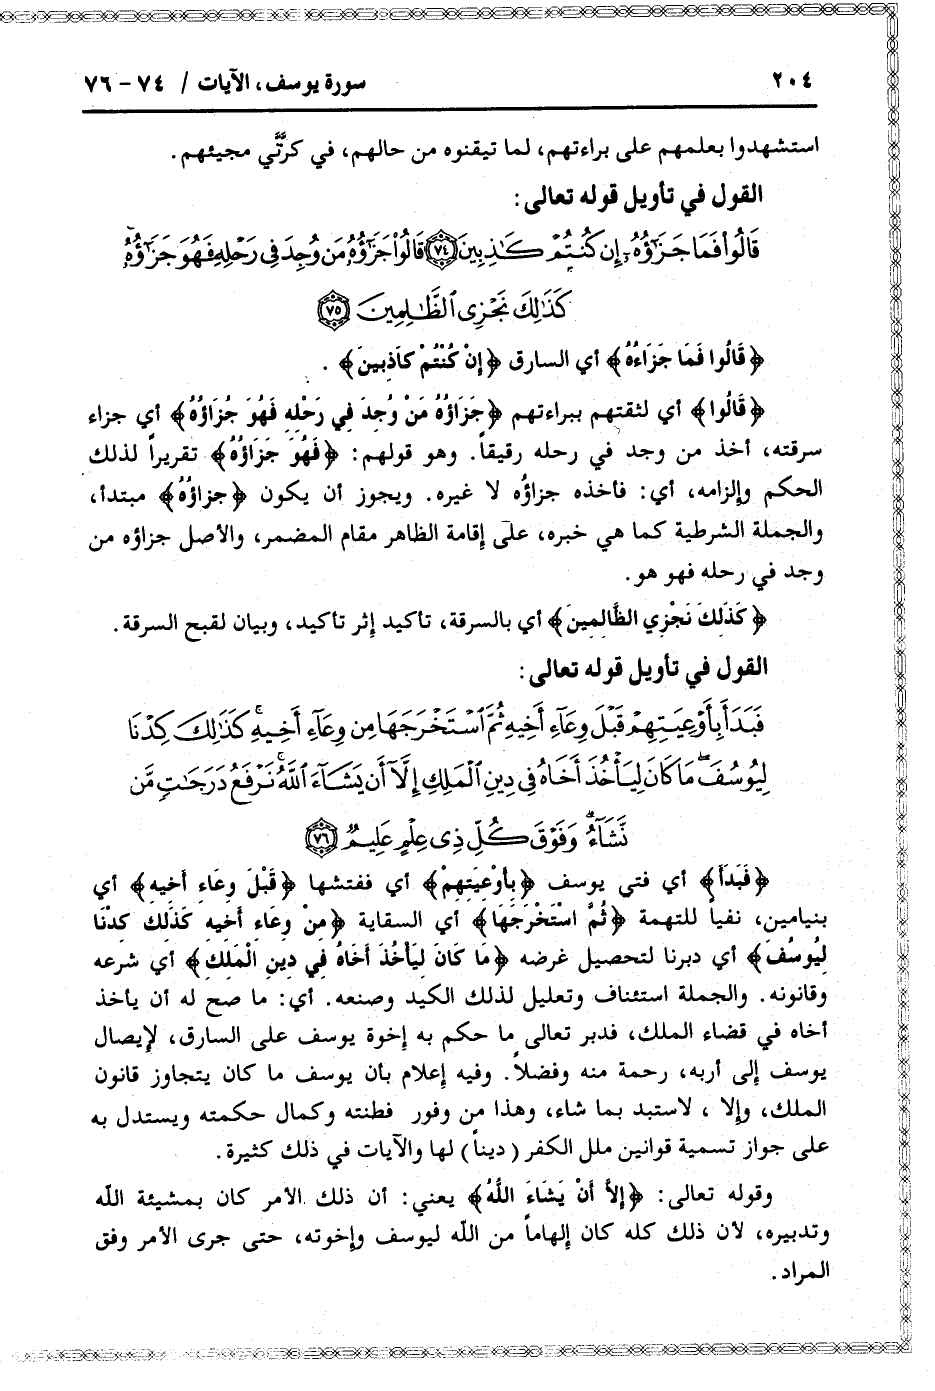 ٢٠٤ سورة يوسف، الآيات / ٧٤ – ٧٦
استشهدوا بعلمهم على براءتهم، لما تيقنوه من حالهم، في كرَّتي مجيئهم.
القول في تأويل قوله تعالى:
قَالُوا۟ فَمَا جَزَٰٓؤُهُۥٓ إِن كُنتُمْ كَٰذِبِينَ ﴿٧٤﴾ قَالُوا۟ جَزَٰٓؤُهُۥ مَن وُجِدَ فِى رَحْلِهِۦ فَهُوَ جَزَٰٓؤُهُۥ
كَذَٰلِكَ نَجْزِى ٱلظَّٰلِمِينَ ﴿٧٥﴾
﴿قَالُوا فَمَا جَزَاءُهُ﴾ أي السارق ﴿إِنْ كُنْتُمْ كَاذِبِينَ﴾ .
﴿قَالُوا﴾ أي لثقتهم ببراءتهم ﴿جَزَاؤُهُ مَنْ وُجِدَ فِي رَحْلِهِ فَهُوَ جُزَاؤُهُ﴾ أي جزاء
سرقته، أخذ من وجد في رحله رقيقاً. وهو قولهم: ﴿فَهُوَ جَزَاؤُهُ﴾ تقريراً لذلك
الحكم وإلزامه، أي: فأخذه جزاؤه لا غيره. ويجوز أن يكون ﴿جزاؤُهُ﴾ مبتدأ،
والجملة الشرطية كما هي خبره، على إقامة الظاهر مقام المضمر، والأصل جزاؤه من
وجد في رحله فهو هو.
﴿كَذَلِكَ نَجْزِي الظَّالِمِينَ﴾ أي بالسرقة، تأكيد إثر تأكيد، وبيان لقبح السرقة.
القول في تأويل قوله تعالى:
فَبَدَأَ بِأَوْعِيَتِهِمْ قَبْلَ وِعَآءِ أَخِيهِ ثُمَّ ٱسْتَخْرَجَهَا مِن وِعَآءِ أَخِيهِ ۚ كَذَٰلِكَ كِدْنَا
لِيُوسُفَ ۖ مَا كَانَ لِيَأْخُذَ أَخَاهُ فِى دِينِ ٱلْمَلِكِ إِلَّآ أَن يَشَآءَ ٱللَّهُ ۚ نَرْفَعُ دَرَجَٰتٍ مَّن
نَّشَآءُ ۗ وَفَوْقَ كُلِّ ذِى عِلْمٍ عَلِيمٌ ﴿٧٦﴾
﴿فَبَدَأَ﴾ أي فتى يوسف ﴿بِأَوْعِيَتِهِمْ﴾ أي ففتشها ﴿قَبْلَ وِعَاءِ أَخِيهِ﴾ أي
بنيامين، نفياً للتهمة ﴿ثُمَّ اسْتَخْرَجَهَا﴾ أي السقاية ﴿مِنْ وِعَاءِ أَخِيهِ كَذَلِكَ كِدْنَا
لِيُوسُفَ﴾ أي دبرنا لتحصيل غرضه ﴿مَا كَانَ لِيَأْخُذَ أَخَاهُ فِي دِينِ الْمَلِكِ﴾ أي شرعه
وقانونه. والجملة استئناف وتعليل لذلك الكيد وصنعه. أي: ما صح له أن يأخذ
أخاه في قضاء الملك، فدبر تعالى ما حكم به إخوة يوسف على السارق، لإيصال
يوسف إلى أربه، رحمة منه وفضلاً. وفيه إعلام بأن يوسف ما كان يتجاوز قانون
الملك، وإلا ، لاستبد بما شاء، وهذا من وفور فطنته وكمال حكمته ويستدل به
على جواز تسمية قوانين ملل الكفر (ديناً) لها والآيات في ذلك كثيرة.
وقوله تعالى: ﴿إِلاَّ أَنْ يَشَاءَ اللَّهُ﴾ يعني: أن ذلك الأمر كان بمشيئة الله
وتدبيره، لأن ذلك كله كان إلهاماً من الله ليوسف وإخوته، حتى جرى الأمر وفق
المراد.